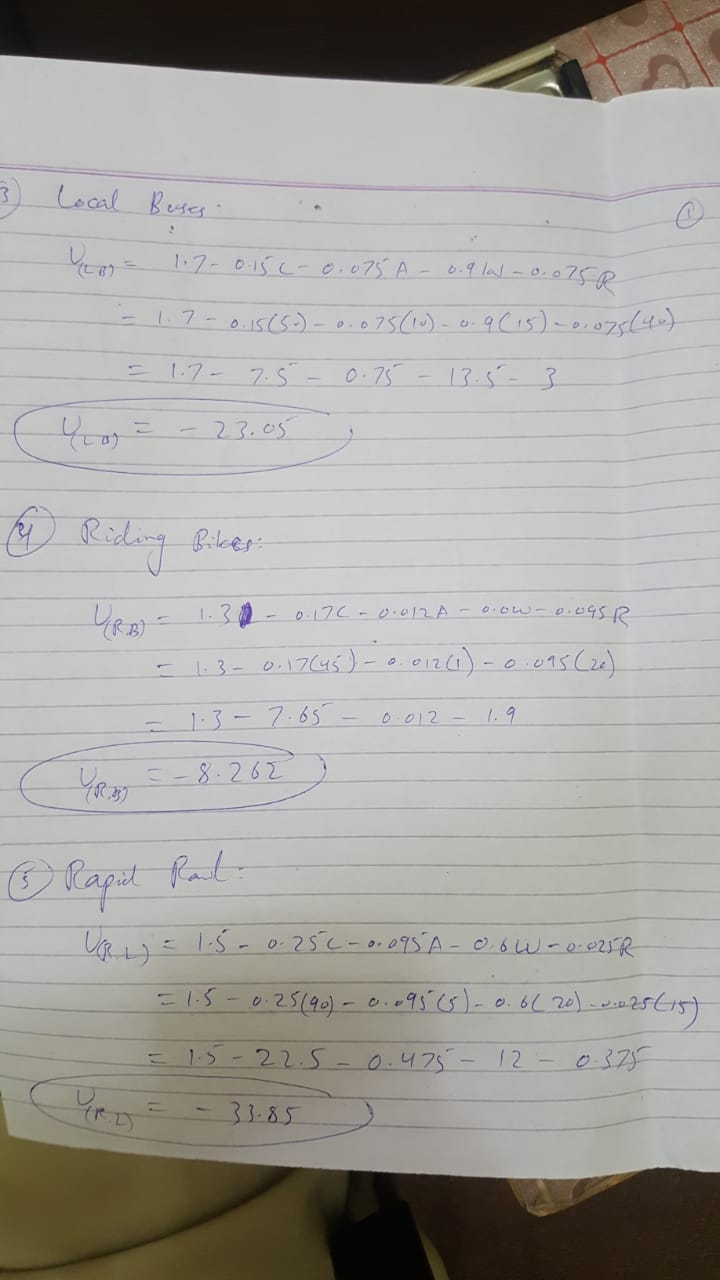 3) Local Buses:
①
U(LB) = 1.7 - 0.15C - 0.075A - 0.9W - 0.075R
= 1.7 - 0.15(50) - 0.075(10) - 0.9(15) - 0.075(40)
= 1.7 - 7.5 - 0.75 - 13.5 - 3
U(LB) = - 23.05
④ Riding Bikes:
U(R.B) = 1.3 - 0.17C - 0.012A - 0.0W - 0.095R
= 1.3 - 0.17(45) - 0.012(1) - 0.095(20)
= 1.3 - 7.65 - 0.012 - 1.9
U(R.B) = - 8.262
⑤ Rapid Rail:
U(R.L) = 1.5 - 0.25C - 0.095A - 0.6W - 0.025R
= 1.5 - 0.25(90) - 0.095(5) - 0.6(20) - 0.025(15)
= 1.5 - 22.5 - 0.475 - 12 - 0.375
U(R.L) = - 33.85